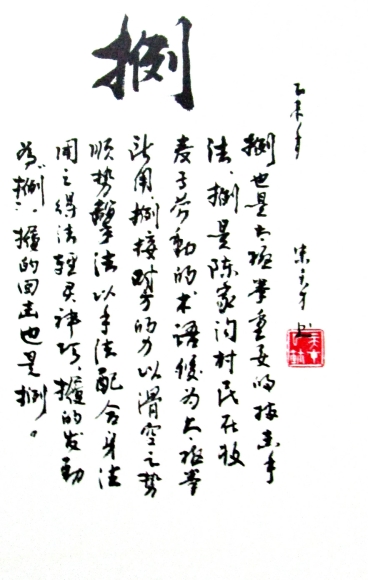 挒
挒也是太极拳重要的技击手
法、挒是陈家沟村民在收
麦子劳动的术语後为太极拳
所用、挒接对方的力以滑空之势
顺势拿法以手法配合身法
用之得法轻灵神巧、的发动
为"挒"、的回击也是挒。
乙未年 朱天才书